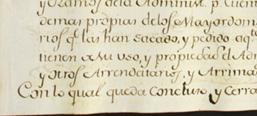 y Ramos de la Administ. p. Cuent
demas propias de los Mayordom
rios q. las han sacado, y pedido aq
tienen a su uso, y propiedad el Ad
y otros Arrendatarios, y Arrima
Con lo qual queda Concluso, y Cerra